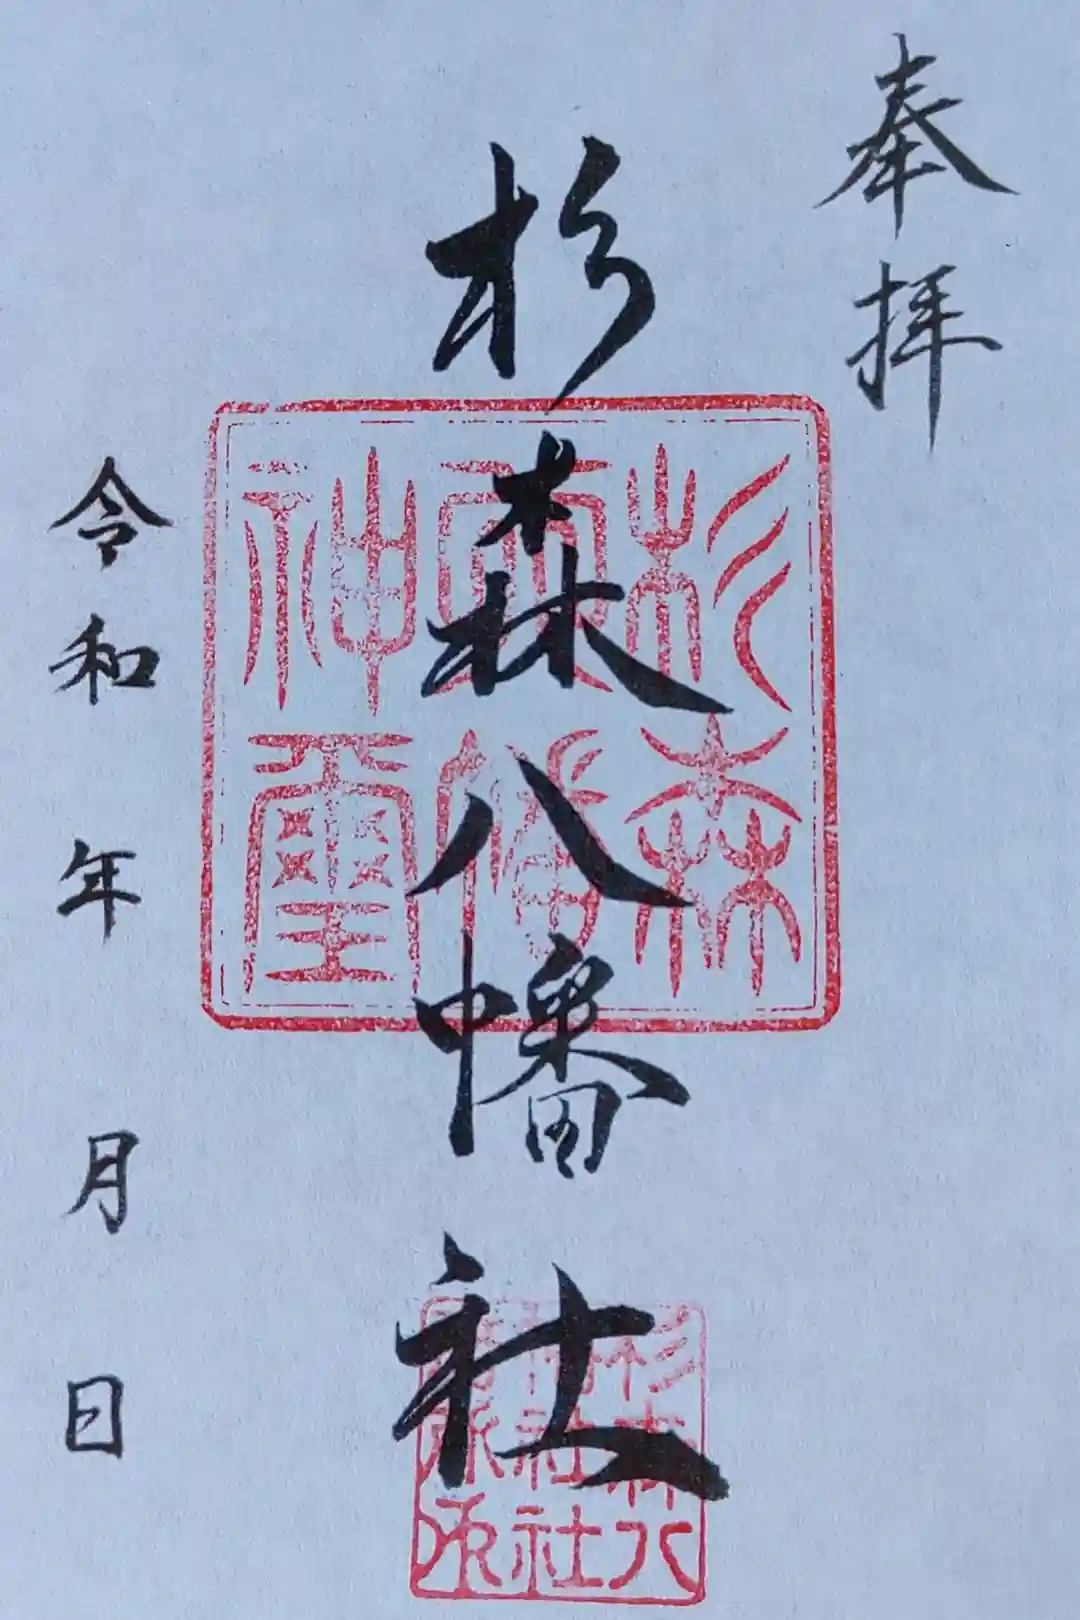 奉拝
杉森八幡社
令和 年 月 日
杉森
神璽